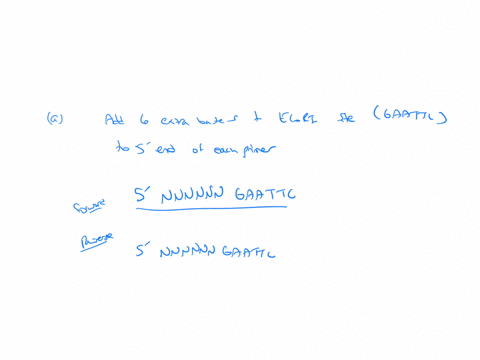 (a) Add 6 extra bases + EcoRI site (GAATTC)
to 5' end of each primer
Forward 5' NNNNNN GAATTC
Reverse 5' NNNNNN GAATTC